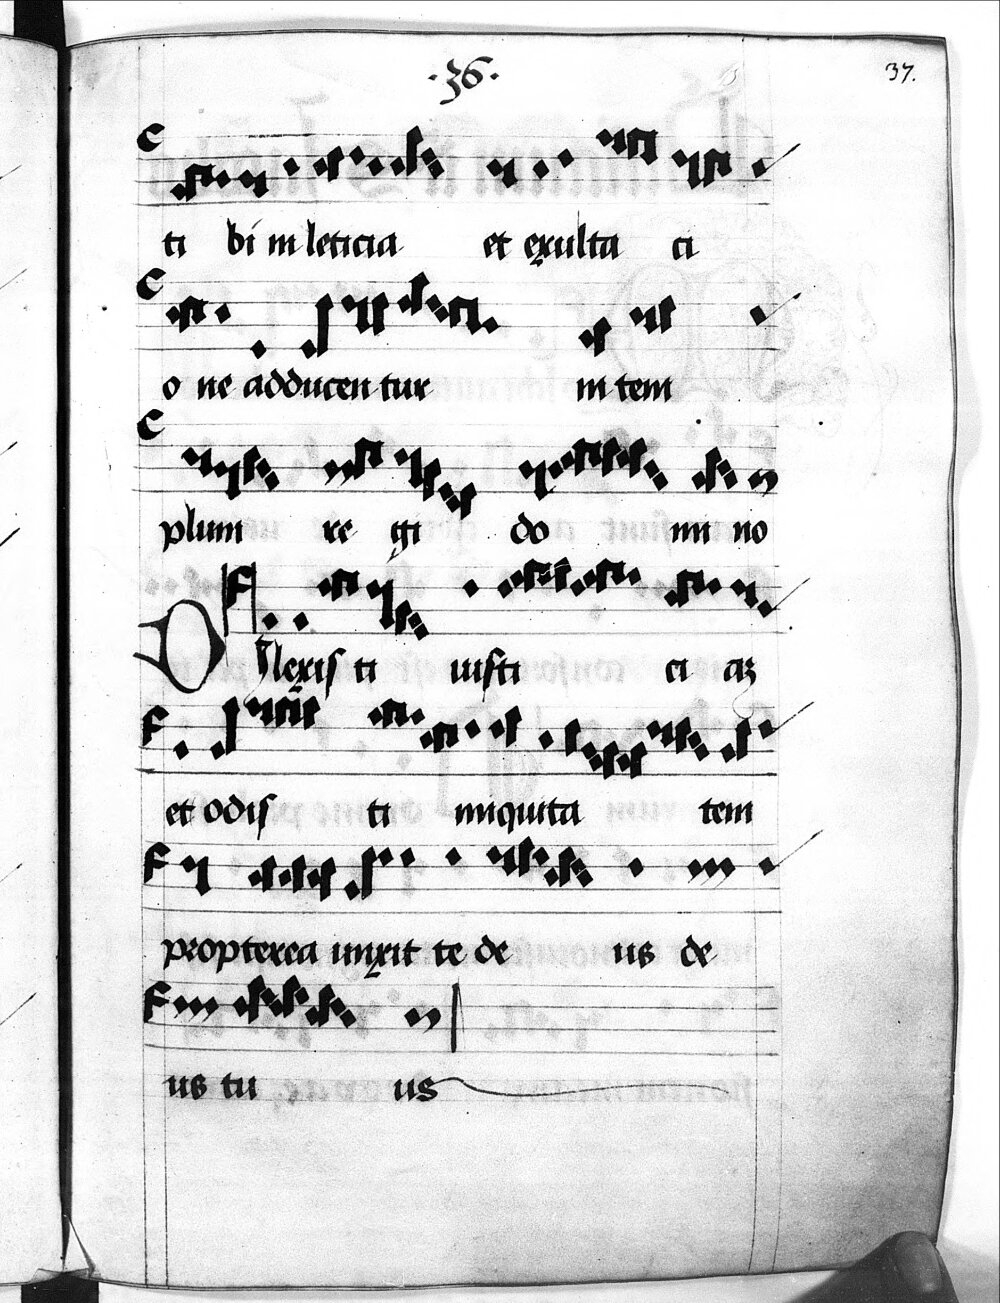 ·36·
37.
ti bi in leticia et exulta ci
o ne adducen tur in tem
plum re gi do mi no
Dilexis ti iusti ci az
et odis ti iniquita tem
propterea unxit te de us de
us tu us